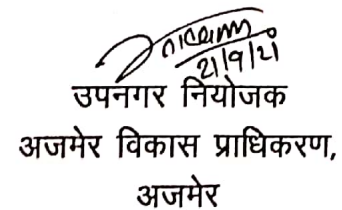 21/9/21
उपनगर नियोजक
अजमेर विकास प्राधिकरण,
अजमेर